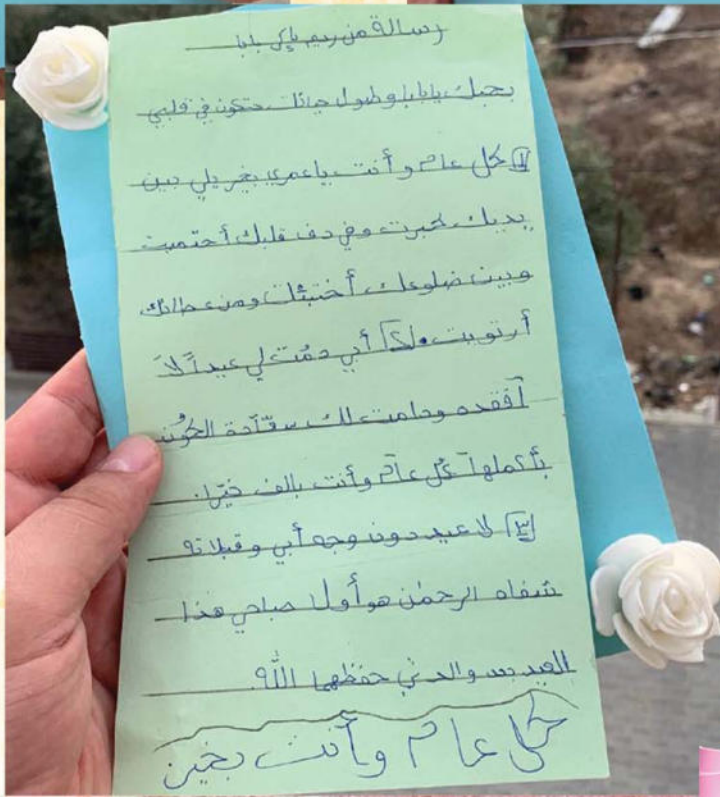 رسالة من ريم إلى بابا
بحبك يابابا وطول حياتك حتكون في قلبي
[1] كل عام وأنت ياعمري بخير يلي بين
يديك كبرت وفي دف قلبك أحتميت
وبين ضلوعك أختبئت ومن عطائك
أرتويت. [2] أبي دمُت لي عيداً لاَ
أفقده ودامت لك سعَآدة الكوُن
بأكملهآ كُل عآم وأنت بألف خيَر.
[3] لا عيد دون وجه أبي وقبلاته
شفاه الرحمٰن هو أول صباحي هذا
العيد والدي حفظها اللّٰه
كل عام وأنت بخير